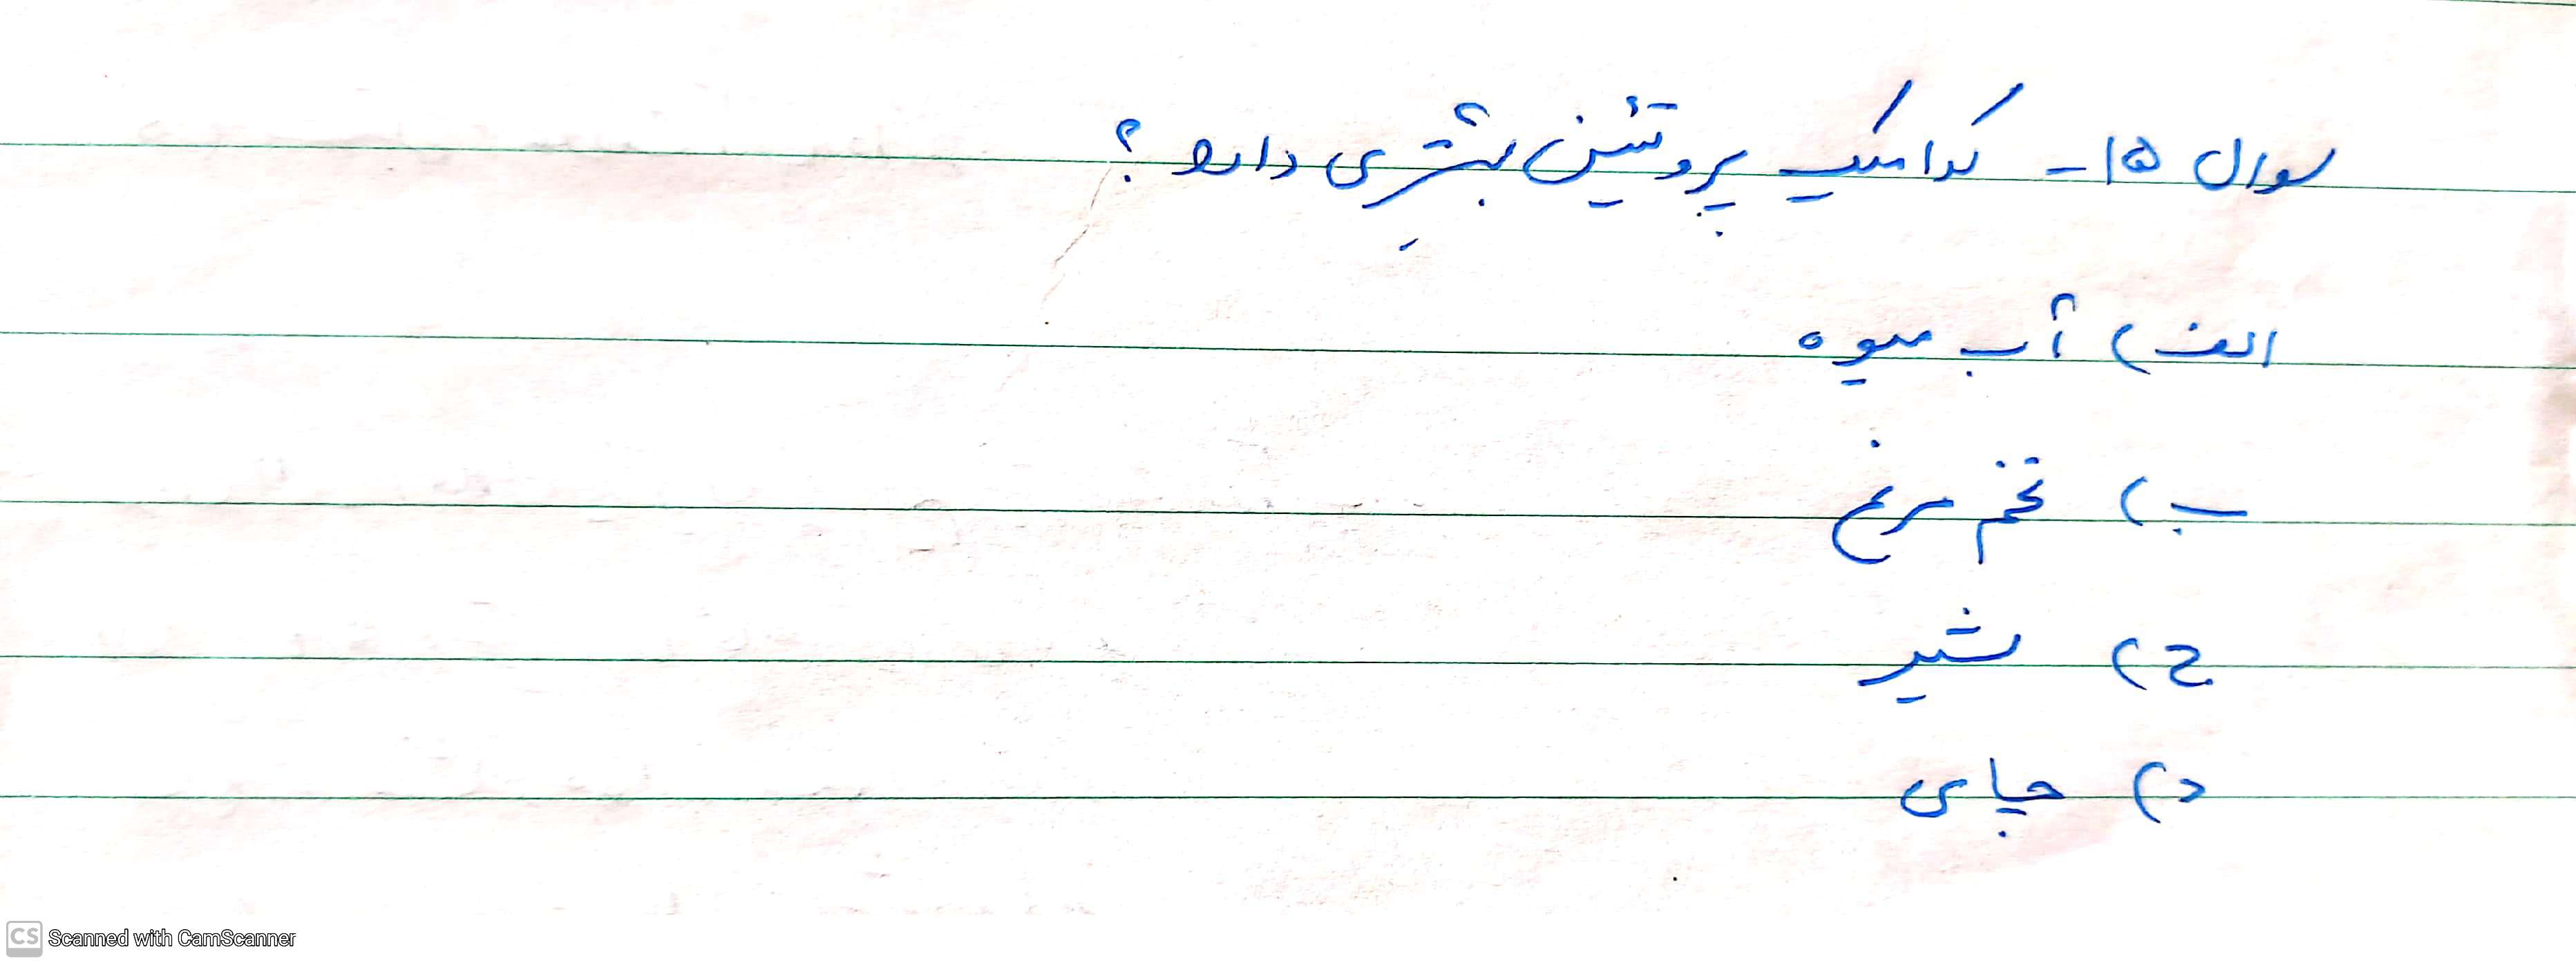 سوال ۱۵- کدامیک پروتئین بیشتری دارد؟
الف) آب میوه
ب) تخم مرغ
ج) شیر
د) چای
CS Scanned with CamScanner